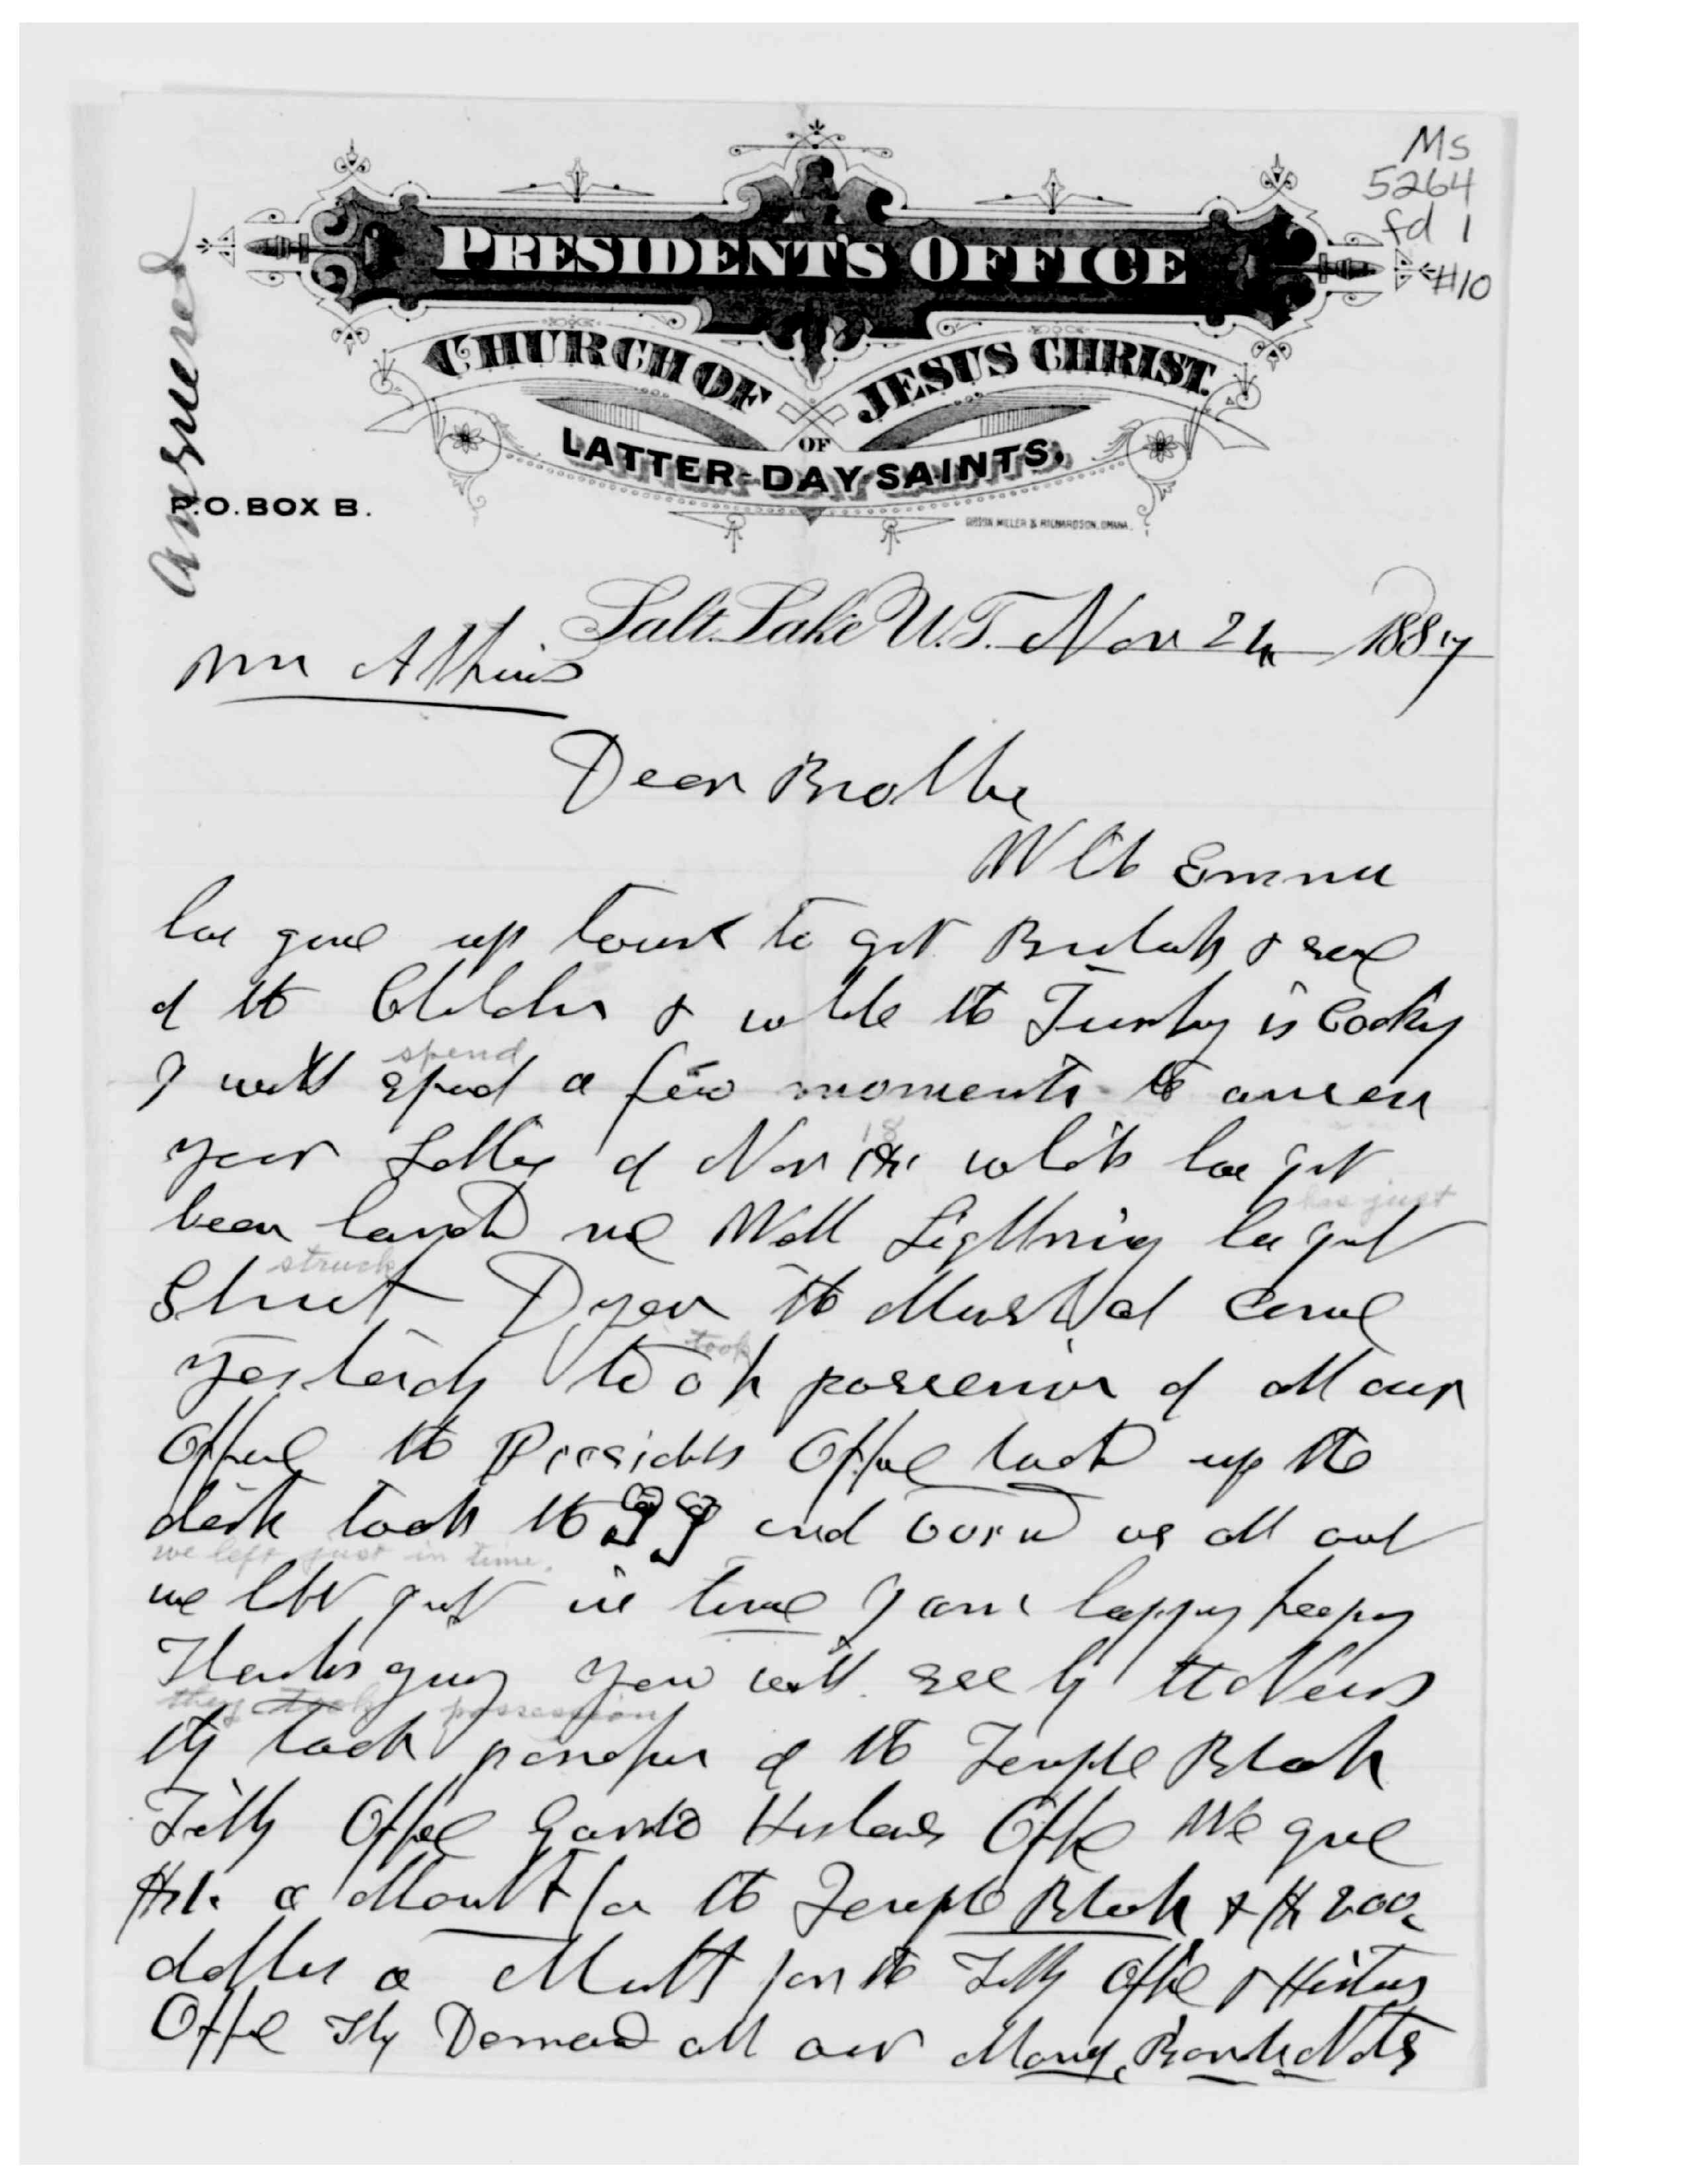 Ms
5264
fd 1
#10
Answered
PRESIDENT'S OFFICE
CHURCH OF JESUS CHRIST.
OF
LATTER-DAY SAINTS.
P.O. BOX B.
Salt Lake U.T. Nov 24 1887
Wm Atkins
Dear Brother
Well Emma
has gone up town to get Beulah &
of the Children & while the Turkey is Cooking
spend
I will spend a few moments to answer
18
your Letter of Nov 18 which has just
has just
been handed me Well Lightning has just
struck
Struck Dyer the Marshal came
took
yesterday took possession of all our
Offices the Presidents Office took up the
desk took the and us all out
we left just in time.
we left just in time I am happy keeping
Thanksgiving you will see by the News
they took possession
they took possession of the Temple Block
Tithing Office Gardo Historians Office We give
a Month for the Temple Block &
dollars a Month for the Tithing Office & Historians
Office They Demand all our Money, Bonds Notes